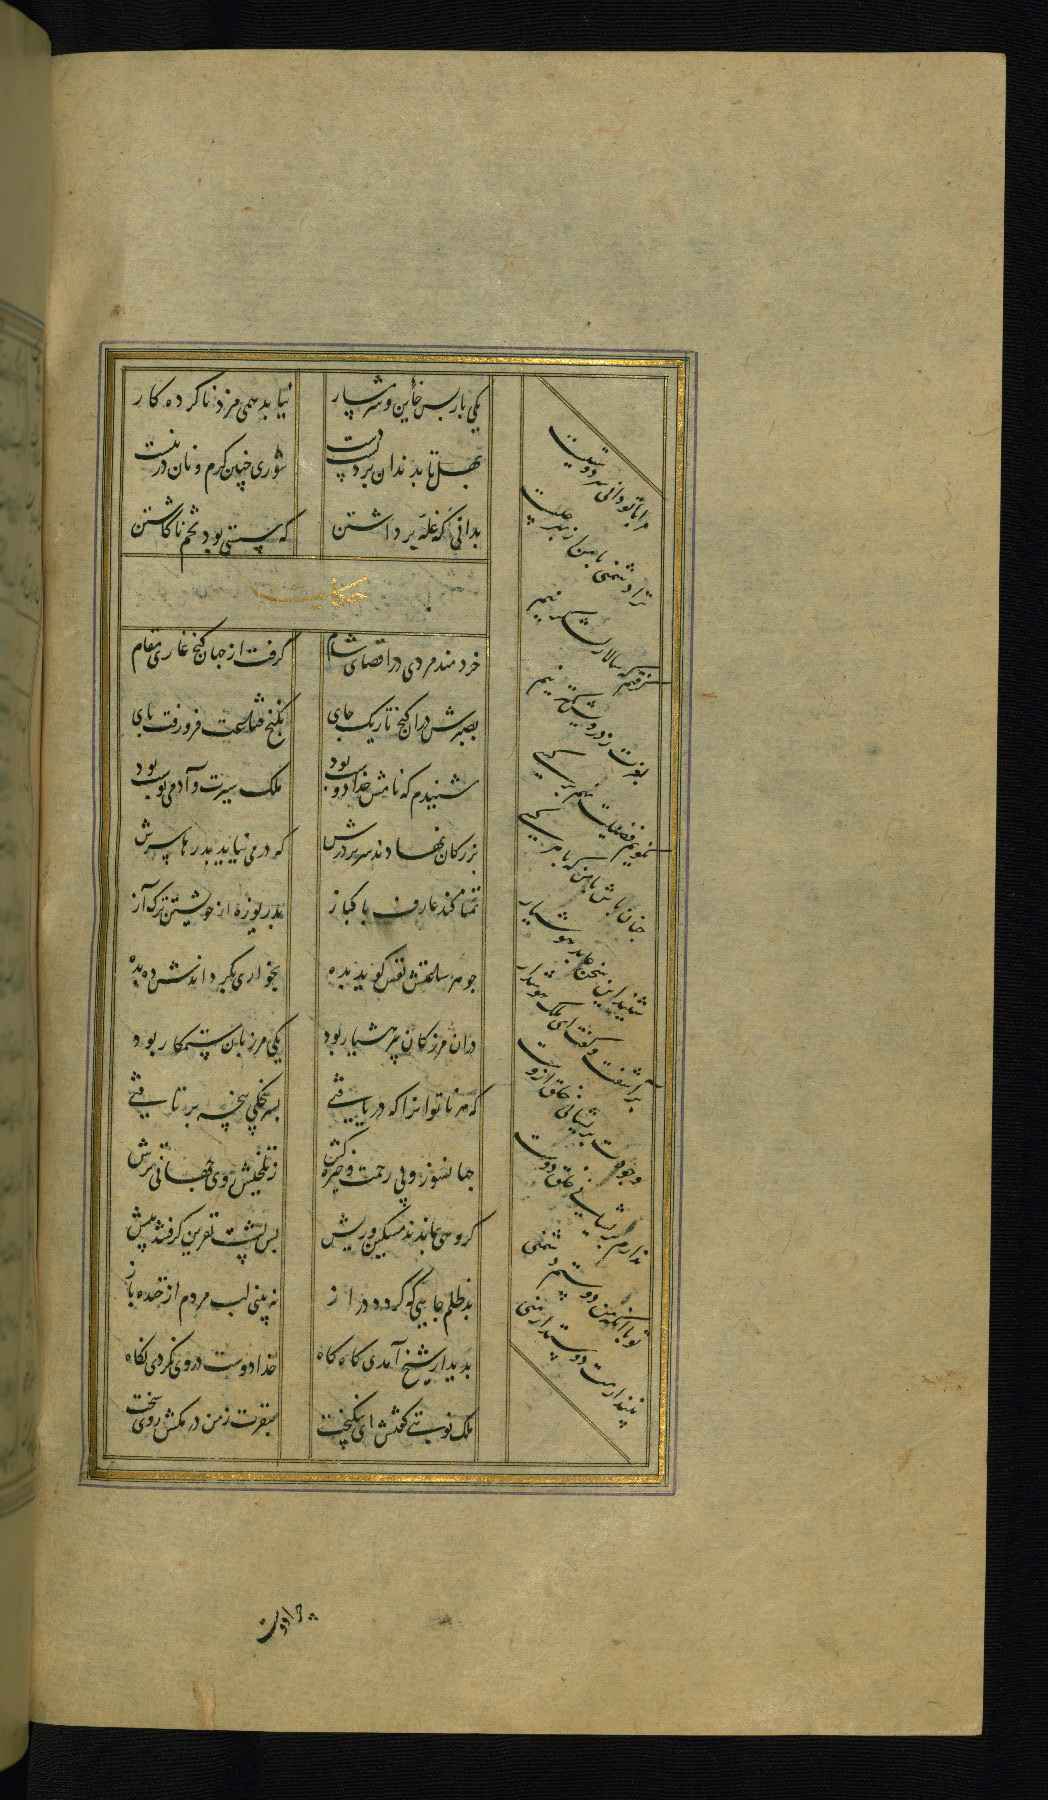 یکی باربس خائن و شرمسار نیابد همی مزد ناکرده کار
بهل تا بدندان برد پشت دست تنوری چنین گرم و نان درنبست
بدانی که غله برداشتن که سستی بود تخم ناکاشتن
حکایت
خردمند مردی در اقصای شام گرفت از جهان کنج غاری مقام
بصبرش در آن کنج تاریک جای بگنج قناعت فرو رفت پای
شنیدم که نامش خدادوست بود ملک سیرت و آدمی پوست بود
بزرگان نهادند سر بر درش که در می نیاید بدرها سرش
تمنا کند عارف پاکباز بدریوزه از خویشتن ترک آز
چو هر ساعتش نفس گوید بده بخواری بگرداندش ده بده
در آن مرز کان پیر هشیار بود یکی مرزبان ستمکار بود
که هر ناتوانرا که دریافتی بسرپنجکی پنجه برتافتی
جهانسوز و بی رحمت و خیره کش ز تلخیش روی جهانی ترش
گروهی بماندند مسکین و ریش پس پشت نفرین گرفتند پیش
ید ظلم جایی که گردد دراز نه بینی لب مردم از خنده باز
بدیدار شیخ آمدی گاه گاه خدادوست در وی نکردی نگاه
ملک نوبتی گفتش ای نیکبخت بنفرت ز من در مکش روی سخت
مرا با تو دانی سر دوستیست
ترا دشمنی با من از بهر چیست
گرفتم که سالار کشور نیم
بعزت ز درویش کمتر نیم
نگویم فضیلت نهم بر کسی
چنان باش با من که با هر کسی
شنید این سخن عابد هوشیار
بر آشفت و گفت ای ملک هوشدار
وجودت پریشانی خلق ازوست
ندارم پریشانی خلق دوست
تو با آنکه من دوستم دشمنی
نپندارمت دوستدار منی
چرا دوست